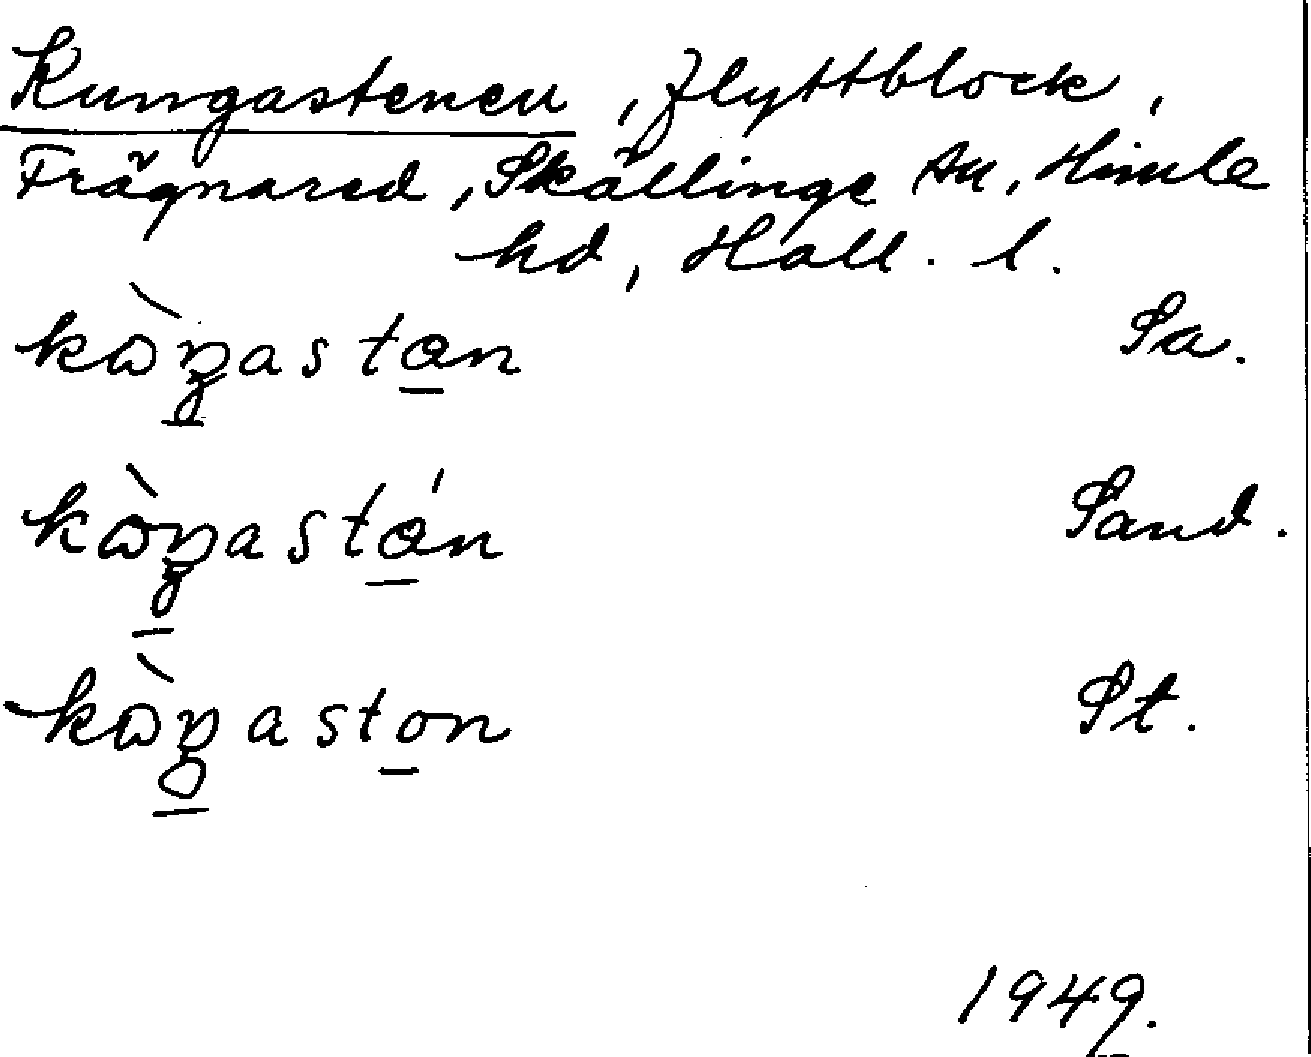 Kungastenen, flyttblock,
Frägnared, Skällinge sn, Himle
hd, Hall. l.
Sa.
Sand.
St.
1949.